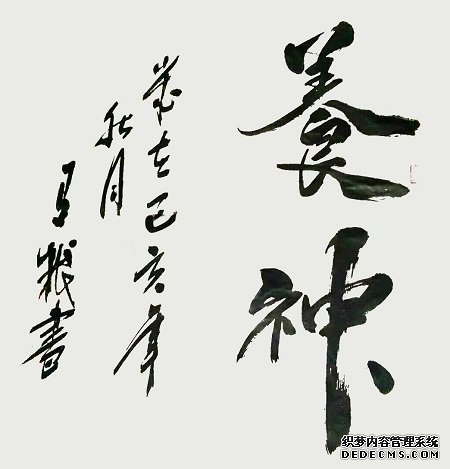 養神
歲在己亥年
秋月
書
织梦内容管理系统
DEDECMS.COM